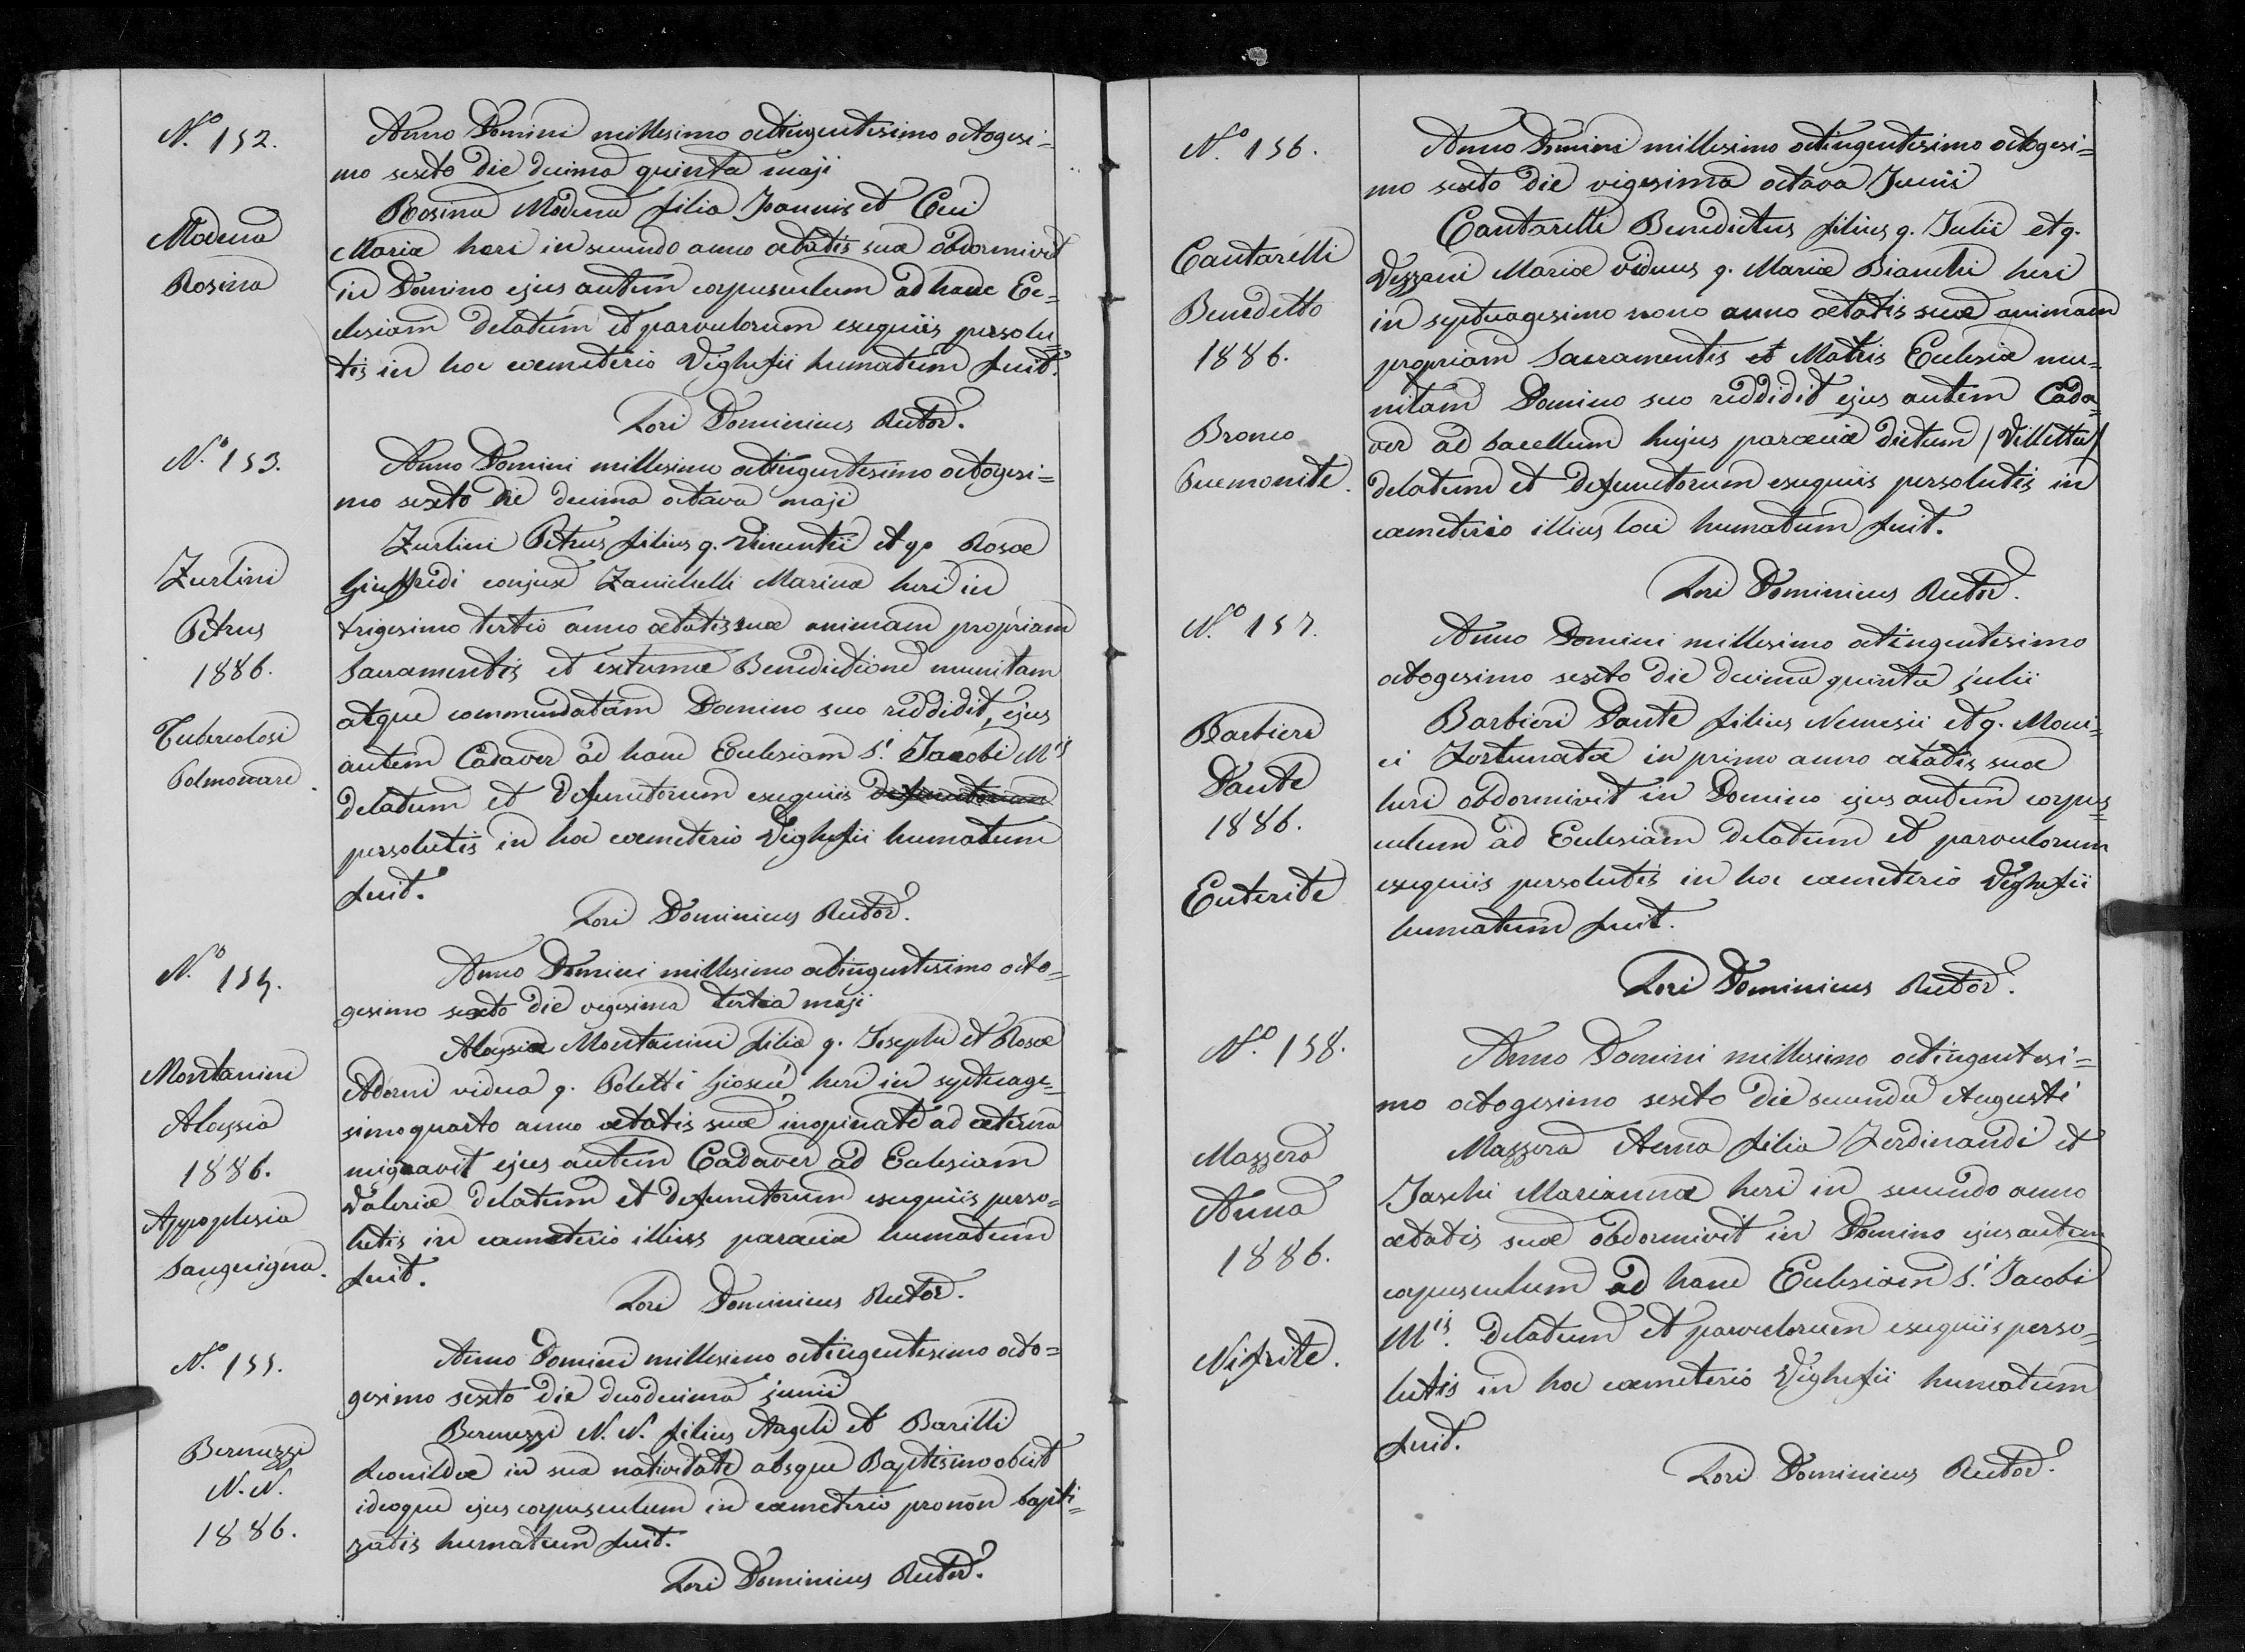 N.o 152.
Modena
Rosina
Anno Domini millesimo octingentesimo octogesi=
mo sexto die decima quinta maji
Rosina Modena filia Joannis et Ceci
Mariæ heri in secundo anno ætatis suæ obdormivit
in Domino ejus autem corpusculum ad hanc Ec=
clesiam delatum et parvulorum exequiis persolu=
tis in hoc cœmeterio Vighefii humatum fuit.
Lori Dominicus Rector.
N.o 153.
Zurlini
Petrus
1886.
Tubercolosi
Polmonare.
Anno Domini millesimo octingentesimo octogesi=
mo sexto die decima octava maji
Zurlini Petrus filius q. Vincentii et q. Rosæ
Giuffredi conjux Zanichelli Marinæ heri in
trigesimo tertio anno ætatis suæ animam propriam
Sacramentis et extrema Benedictione munitam
atque commendatam Domino suo reddidit, ejus
autem Cadaver ad hanc Ecclesiam S.i Jacobi M.is
delatum et defunctorum exequiis defunctorum
persolutis in hoc cœmeterio Vighefii humatum
fuit.
Lori Dominicus Rector.
N.o 154.
Montanini
Aloysia
1886.
Appoplesia
Sanguigna.
Anno Domini millesimo octingentesimo octo=
gesimo sexto die vigesima tertia maji
Aloysia Montanini filia q. Josephi et Rosæ
Adorni vidua q. Poletti Giosuè heri in septuage=
simoquarto anno ætatis suæ inopinate ad æterna
migravit ejus autem Cadaver ad Ecclesiam
Valeriæ delatum et defunctorum exequiis perso=
lutis in cœmeterio illius parœciæ humatum
fuit.
Lori Dominicus Rector.
N.o 155.
Bernuzzi
N. N.
1886.
Anno Domini millesimo octingentesimo octo=
gesimo sexto die duodecima junii
Bernuzzi N. N. filius Angeli et Barilli
Leonildæ in sua nativitate absque Baptismo obiit
ideoque ejus corpusculum in cœmeterio pro non bapti=
zatis humatum fuit.
Lori Dominicus Rector.
N.o 156.
Cantarelli
Benedetto
1886.
Bronco
Pneumonite.
Anno Domini millesimo octingentesimo octogesi=
mo sexto die vigesima octava Junii
Cantarelli Benedictus filius q. Julii et q.
Vezzani Mariæ viduus q. Mariæ Bianchi heri
in septuagesimo nono anno ætatis suæ animam
propriam Sacramentis et Matris Ecclesiæ mu=
nitam Domino suo reddidit ejus autem Cada=
ver ad sacellum hujus parœciæ dictum (Villetta)
delatum et defunctorum exequiis persolutis in
cœmeterio illius loci humatum fuit.
Lori Dominicus Rector.
N.o 157.
Barbieri
Dante
1886.
Enterite
Anno Domini millesimo octingentesimo
octogesimo sexto die decima quinta julii
Barbieri Dante filius Nemesii et q. Moni=
ci Fortunatæ in primo anno ætatis suæ
heri obdormivit in Domino ejus autem corpus=
culum ad Ecclesiam delatum et parvulorum
exequiis persolutis in hoc cœmeterio Vighefii
humatum fuit.
Lori Dominicus Rector.
N.o 158.
Mazzera
Anna
1886.
Nifrite.
Anno Domini millesimo octingentesi=
mo octogesimo sexto die secunda Augusti
Mazzera Anna filia Ferdinandi et
Jaschi Mariannæ heri in secundo anno
ætatis suæ obdormivit in Domino ejus autem
corpusculum ad hanc Ecclesiam S.i Jacobi
M.is delatum et parvulorum exequiis perso=
lutis in hoc cœmeterio Vighefii humatum
fuit.
Lori Dominicus Rector.